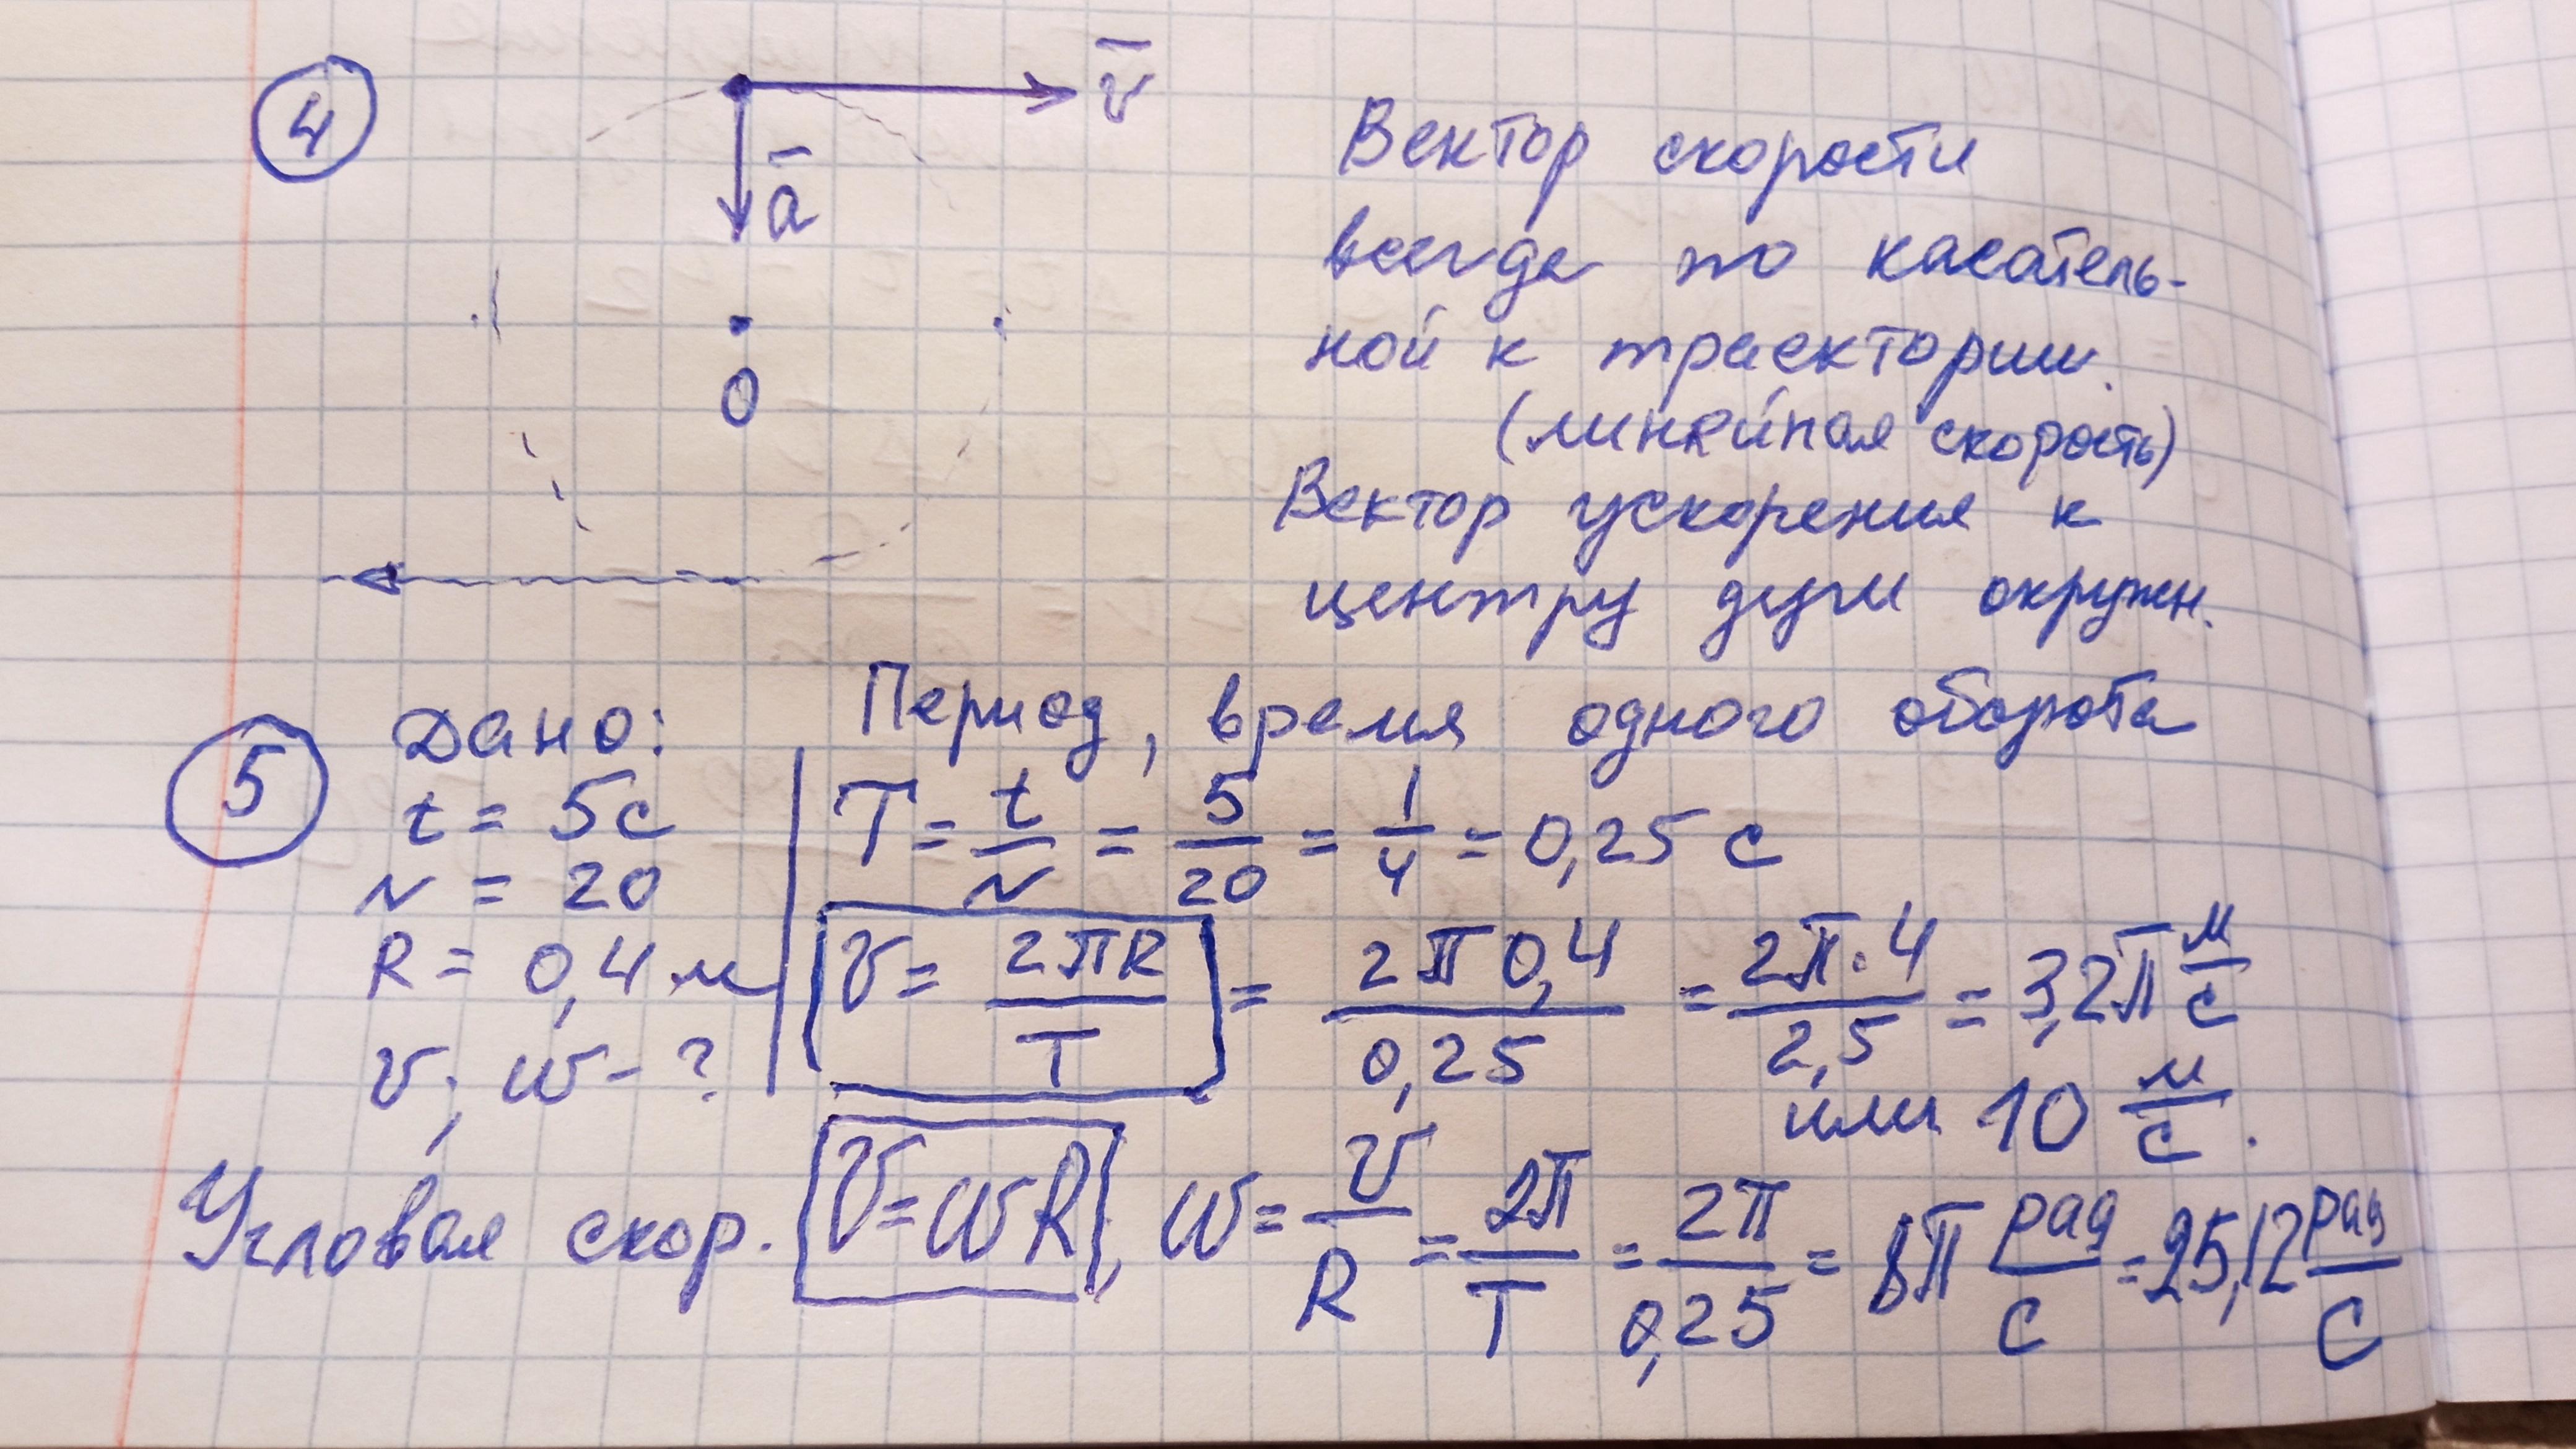 4
v̅
a̅
0
Вектор скорости
всегда по касатель-
ной к траектории.
(линейная скорость)
Вектор ускорения к
центру дуги окружн.
5
Дано:
t = 5с
N = 20
R = 0,4 м
v; ω - ?
Период, время одного оборота
T = t/N = 5/20 = 1/4 = 0,25 с
v = 2πR/T = 2π0,4/0,25 = 2π·4/2,5 = 3,2π м/с
или 10 м/с.
Угловая скор. v = ωR; ω = v/R = 2π/T = 2π/0,25 = 8π рад/с = 25,12 рад/с